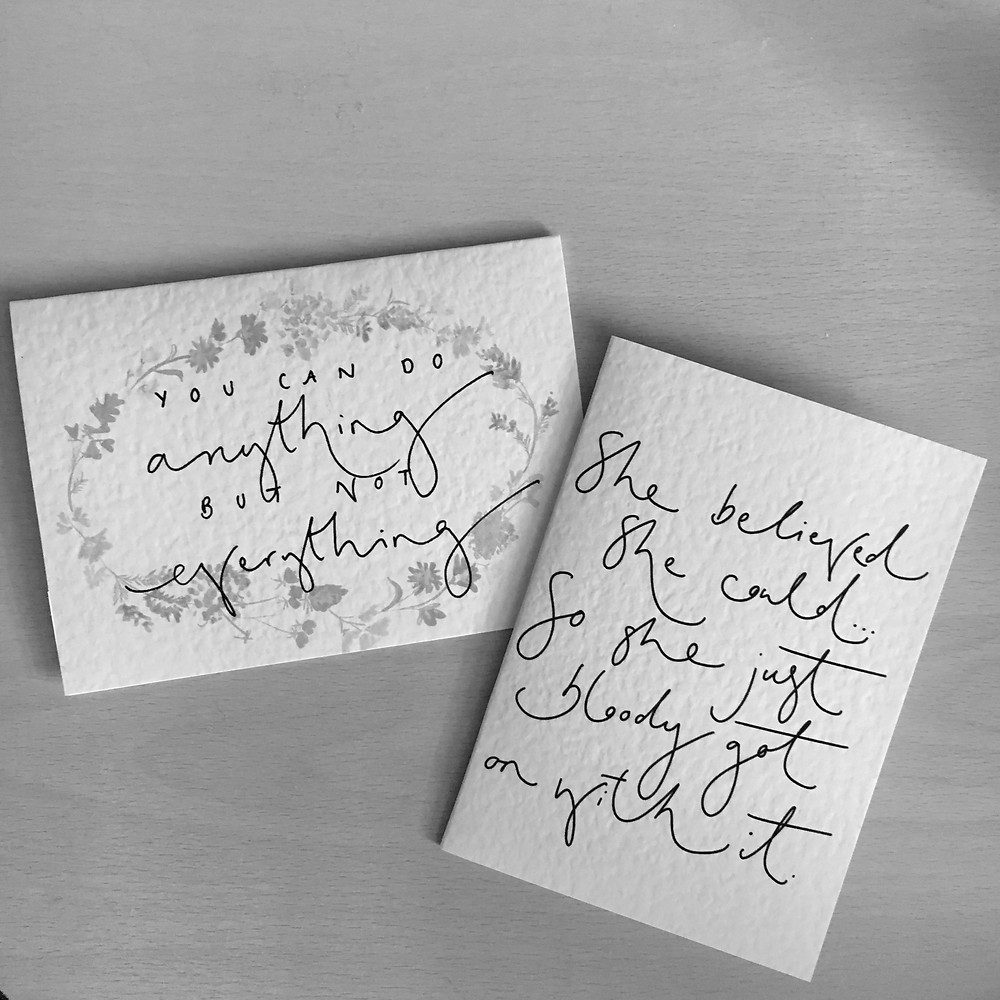 YOU CAN DO
anything
BUT NOT
everything
She believed
She could...
So she just
bloody got
on with it.